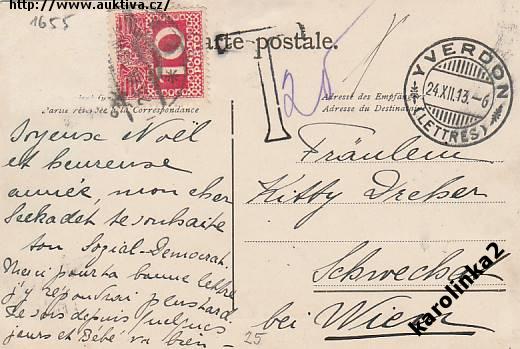 http://www.auktiva.cz/
1655
10
Carte postale.
T
25
YVERDON
24.XII.13.-6
(LETTRES)
Partie réservée à la Correspondance
Adresse des Empfängers
Adresse du Destinataire
Joyeuse Noël
et heureuse
année, mon cher
Seekadet te souhaite
ton Sozial-Democrat.
Merci pour ta bonne lettre
j'y répondrai plus tard
Je suis depuis quelques
jours et Bébé va bien -
Fräulein
Kitty Dreher
Schwechat
bei Wien
25
karolinka2